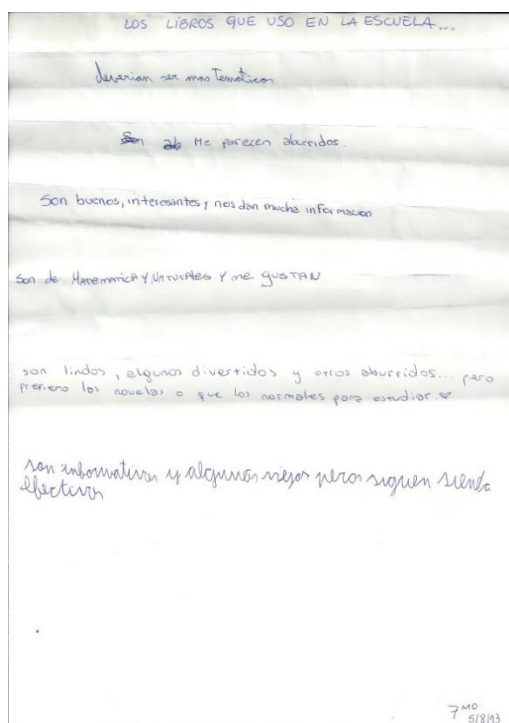 LOS LIBROS QUE USO EN LA ESCUELA...
deverian ser mas Tematicos
Son ab Me parecen aburridos.
Son buenos, interesantes y nos dan mucha informacion
Son de MATEMATICA Y NATURALES Y ME GUSTAN
son lindos, algunos divertidos y otros aburridos... pero
prefiero las novelas o que los normales para estudiar.
son informativos y algunos viejos peros siguen siendo
efectivos
7MO
5/8/13